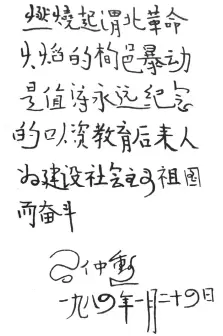 燃燒起渭北革命
火焰的栒邑暴动
是值得永远纪念
的以资教育后来人
为建设社会主义祖国
而奋斗
习仲勳
一九八四年一月二十四日